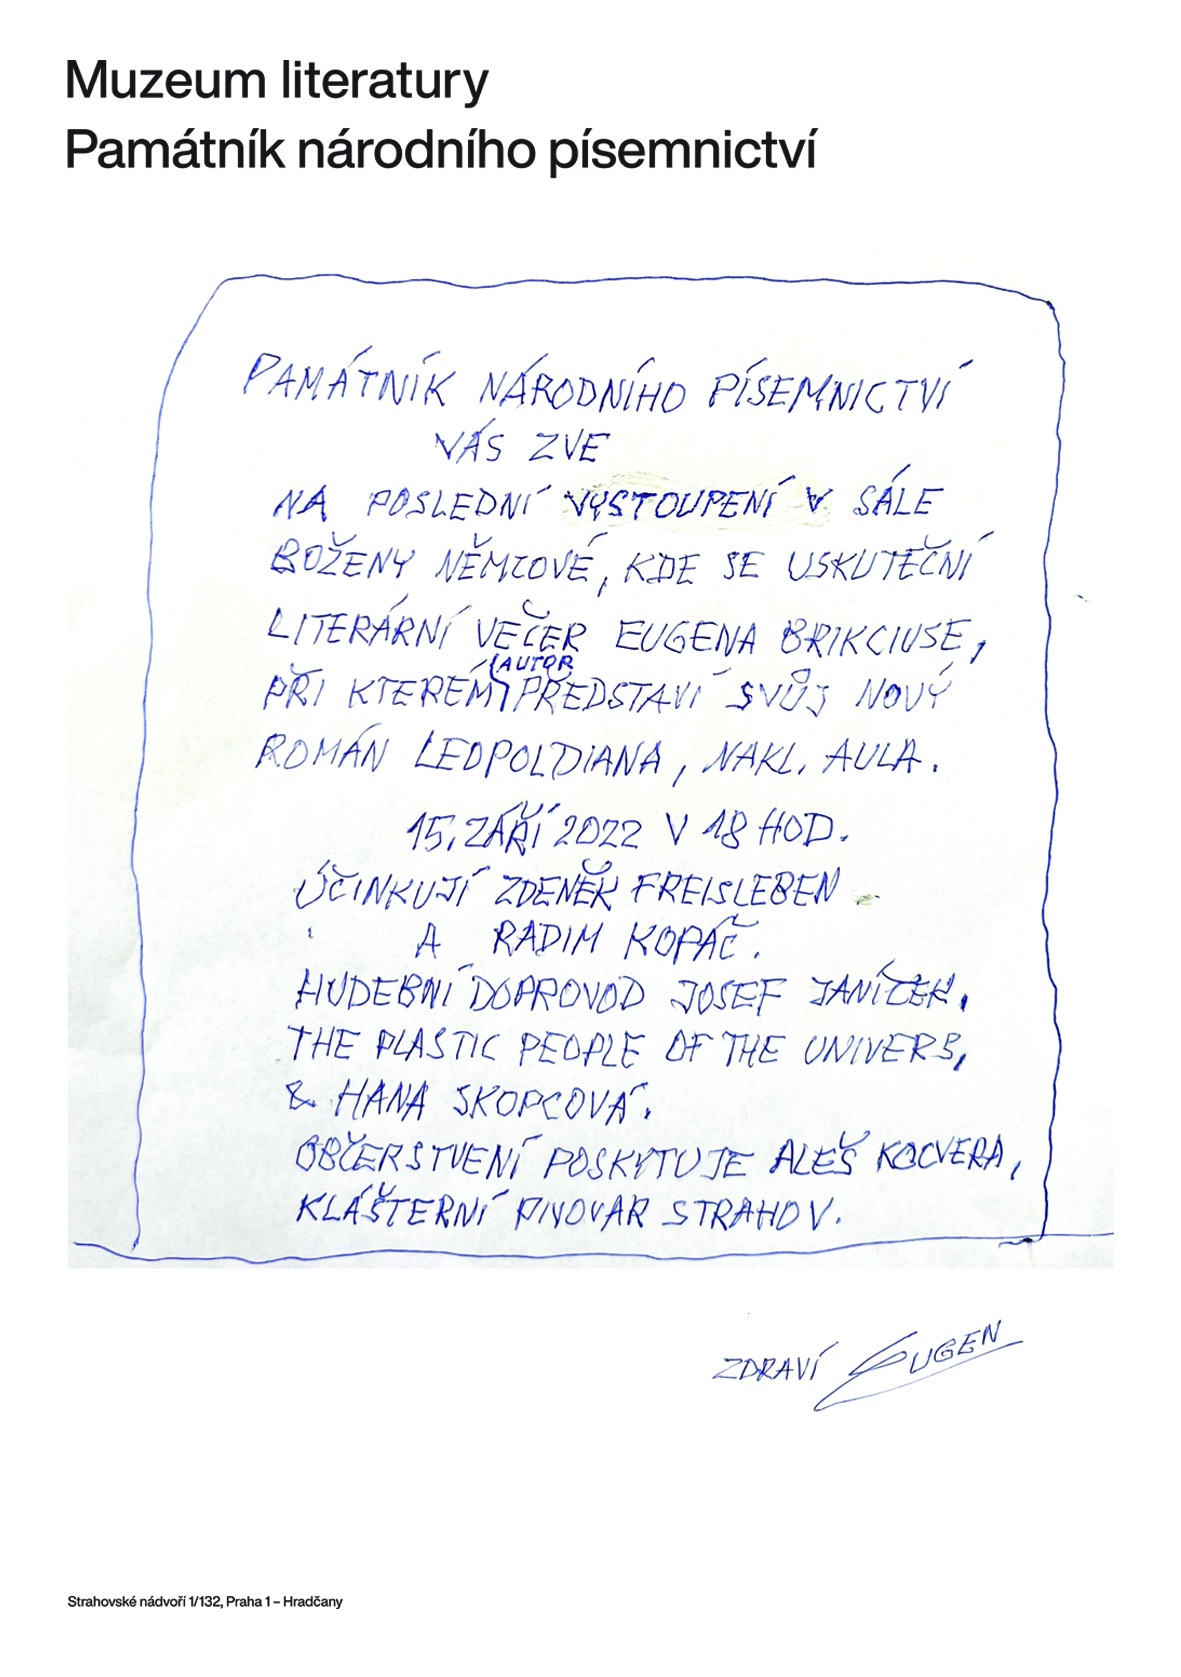 Muzeum literatury
Památník národního písemnictví
PAMÁTNÍK NÁRODNÍHO PÍSEMNICTVÍ
VÁS ZVE
NA POSLEDNÍ VYSTOUPENÍ V SÁLE
BOŽENY NĚMCOVÉ, KDE SE USKUTEČNÍ
LITERÁRNÍ VEČER EUGENA BRIKCIUSE,
AUTOR
PŘI KTERÉM PŘEDSTAVÍ SVŮJ NOVÝ
ROMÁN LEOPOLDIANA, NAKL. AULA.
15. ZÁŘÍ 2022 V 18 HOD.
ÚČINKUJÍ ZDENĚK FREISLEBEN
A RADIM KOPÁČ.
HUDEBNÍ DOPROVOD JOSEF JANÍČEK,
THE PLASTIC PEOPLE OF THE UNIVERS,
& HANA SKOPCOVÁ.
OBČERSTVENÍ POSKYTUJE ALEŠ KOCVERA,
KLÁŠTERNÍ PIVOVAR STRAHOV.
ZDRAVÍ EUGEN
Strahovské nádvoří 1/132, Praha 1 – Hradčany